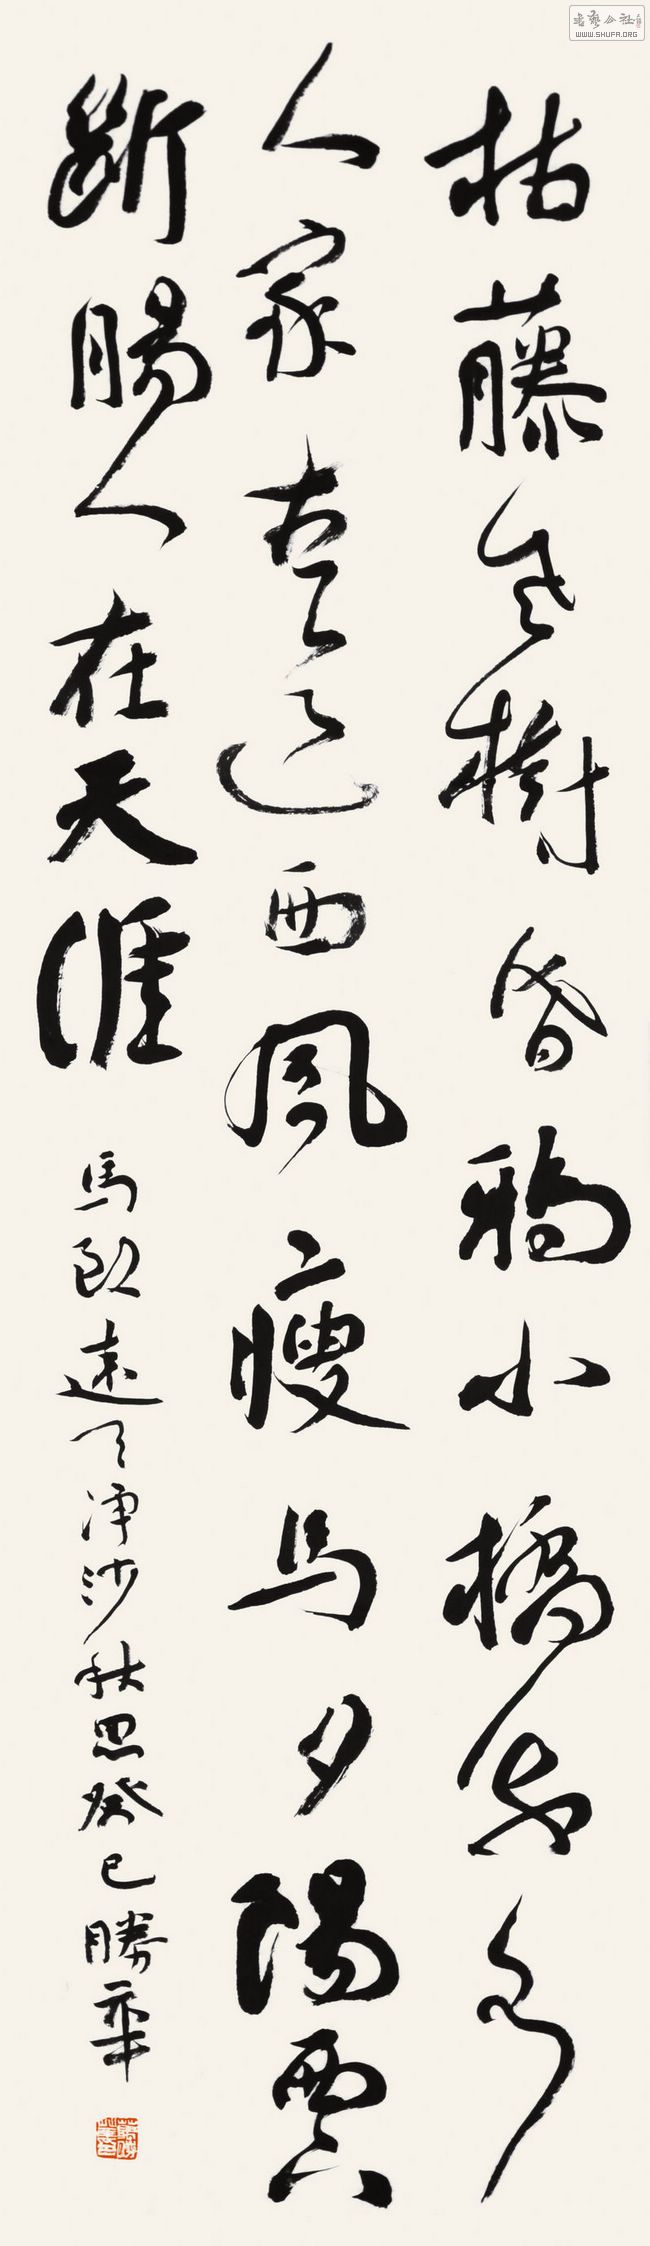 枯藤老樹昏鴉小橋流水
人家古道西風瘦馬夕陽西下
斷腸人在天涯
馬致遠天淨沙秋思癸巳勝華
書藝公社
WWW.SHUFA.ORG